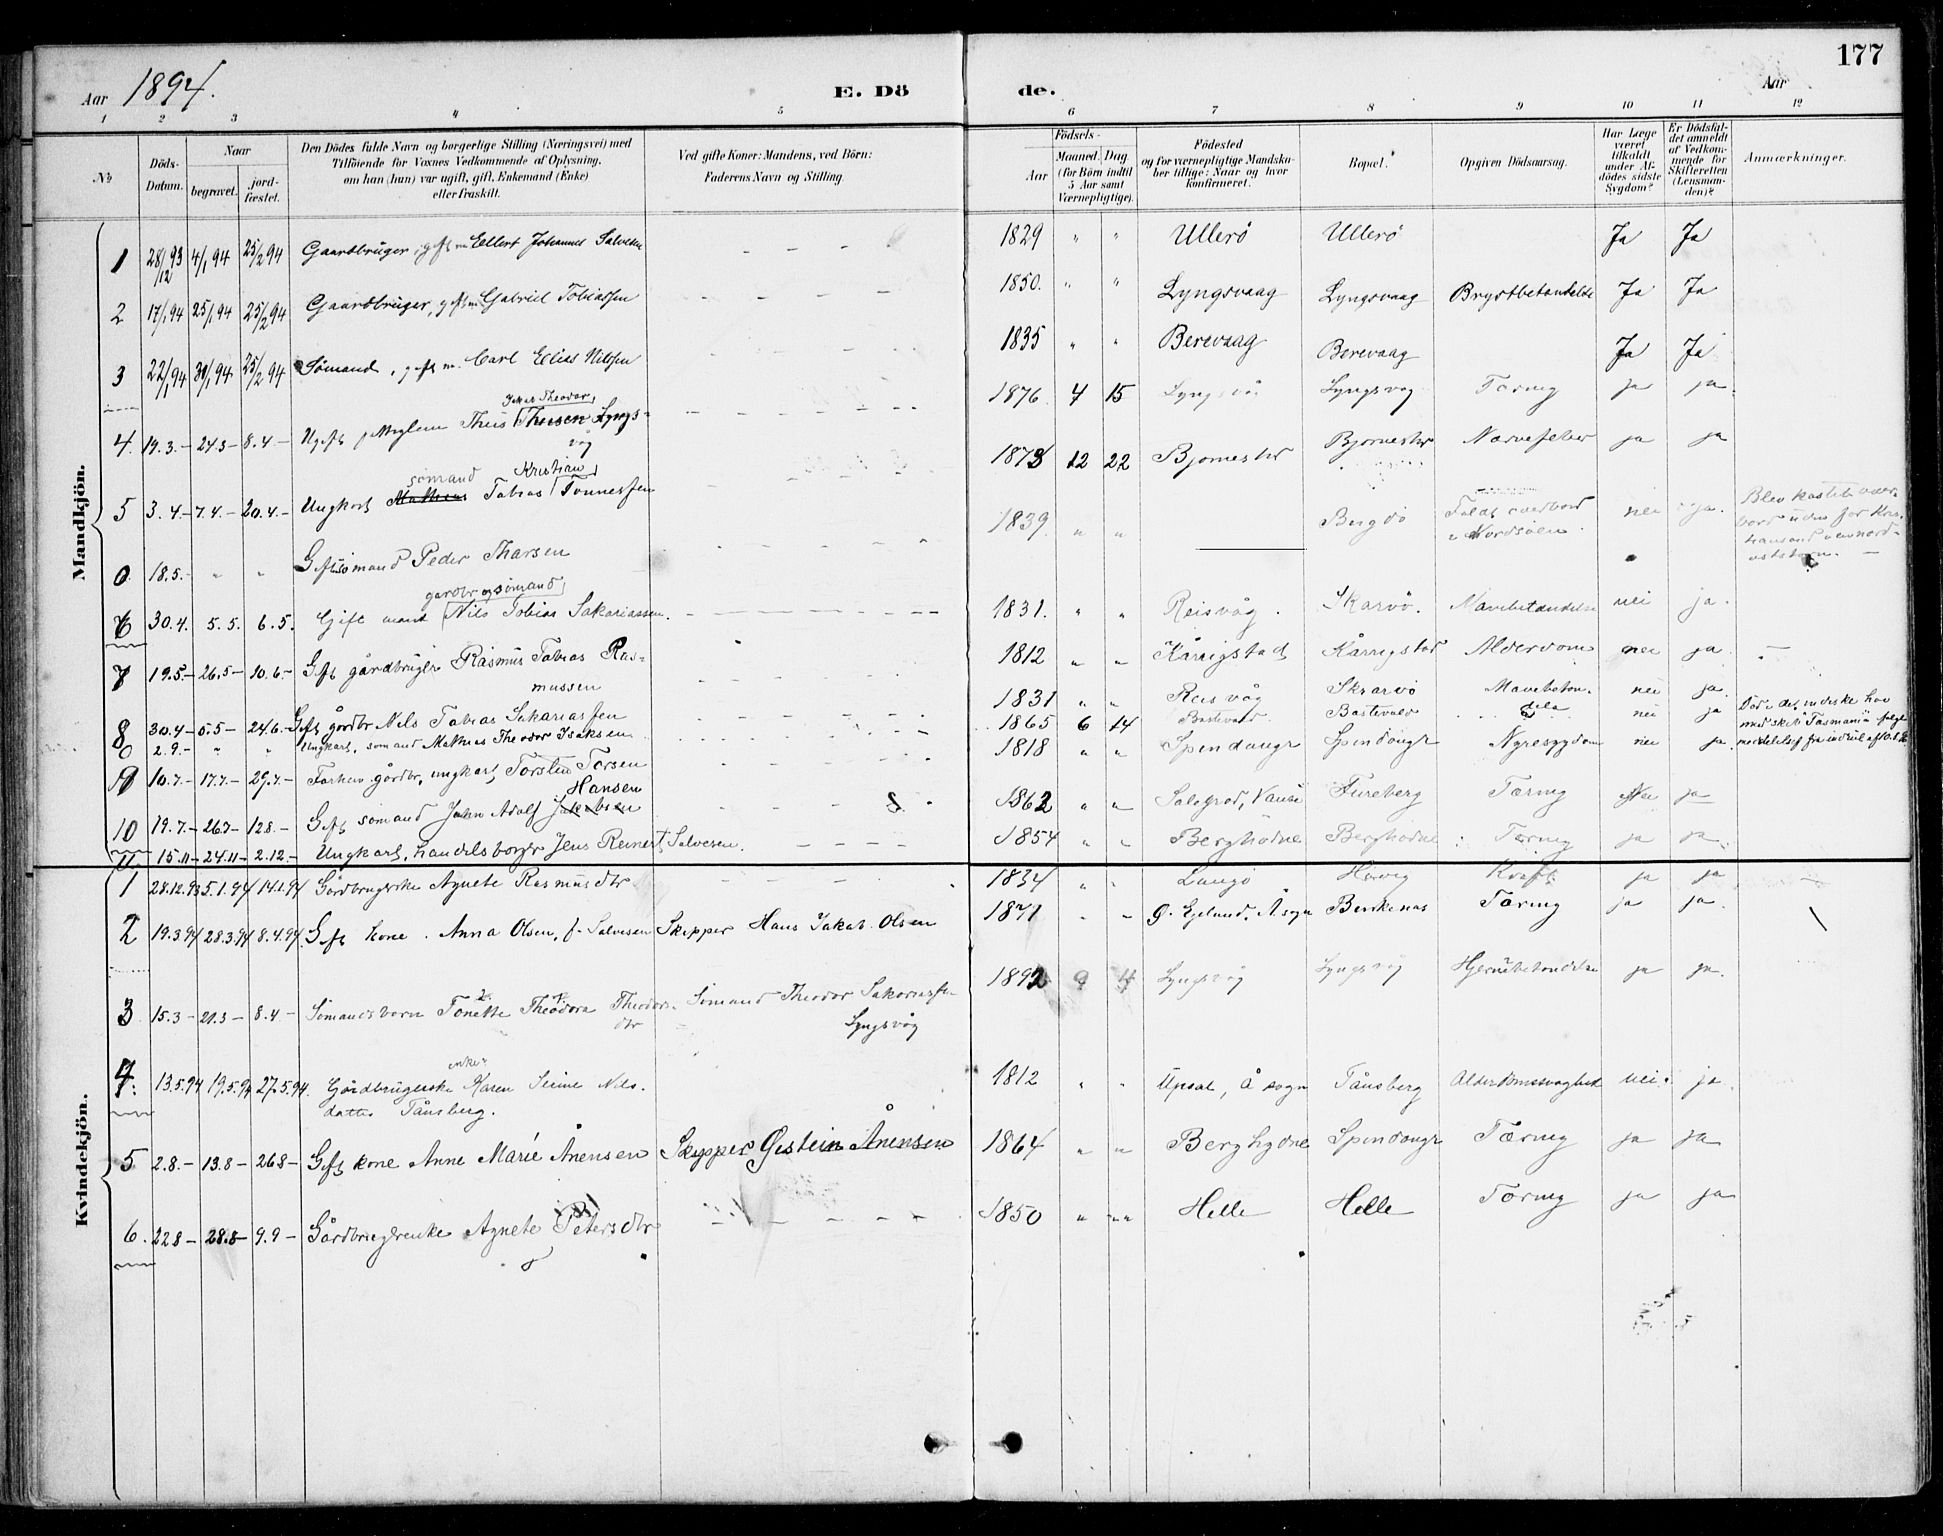 177
Aar 1894.
E. Dö de.
Aar
1 2 3 4 5 6 7 8 9 10 11 12
No
Döds-Datum.
Naar
begravet.
jord-fæstet.
Den Dödes fulde Navn og borgerlige Stilling (Næringsvei) med
Tilföiende for Voxnes Vedkommende af Oplysning,
om han (hun) var ugift, gift, Enkemand (Enke)
eller fraskilt.
Ved gifte Koner: Mandens, ved Börn:
Faderens Navn og Stilling.
Födsels-
Aar
Maaned. Dag.
(for Börn indtil
5 Aar samt
Værnepligtige).
Födested
og for værnepligtige Mandska-
ber tillige: Naar og hvor
konfirmeret.
Bopæl.
Opgiven Dödsaarsag.
Har Læge
været
tilkaldt
under Af-
dödes sidste
Sygdom?
Er Dödsfal-
det anmeldt
af Vedkom-
mende for
Skifteretten
(Lensman-
den)?
Anmærkninger.
Mandkjön.
1 28/12 93 4/1 94 25/2 94 Gaardbruger, gift m Ellert Johannes Salvesen - - - - 1829 " " Ullerö Ullerö Ja Ja
2 17/1 94 25/1 94 25/2 94 Gaardbruger, gift m Gabriel Tobiassen - - - - 1850. " " Lyngsvaag Lyngsvaag Brystbetændelse Ja Ja
3 22/1 94 30/1 94 25/2 94 Sömand, gift m. Carl Elias Nilssen - - - - 1835 " " Berevaag Berevaag Ja Ja
Theodor
4 19.3.- 24.3- 8.4- Ugift Theis Theisen Lyngs-
våg - - - - 1876 4 15 Lyngsvåg Lyngsvåg Tæring ja ja
sömand Kristian
5 3.4.- 7.4.- 20.4.- Ungkarl Mathias Tobias Tönnessen - - - - 1873 12 22 Bjørnestad Nervefeber ja ja
0 18.5.- " " Gift sömand Peder Tharsen - - - - 1839 " " Faldt overbord
i Nordsöen. nei ja. Blev kastet over-
bord uden for Kris-
tiansand
gårdbr og sömand
6 30.4. 5.5. 6.5. Gift mand Nils Tobias Sakariassen. - - - - 1831. " " Reisvåg. Skarvö. Mavebetændelse nei ja.
7 19.5.- 26.5- 10.6.- Gift gårdbruger Rasmus Tobias Ras-
mussen - - - - 1812 " " Kårrigstad Kårrigstad Alderdom nei ja
8 30.4- 5.5- 24.6- Gift gårdbr Nils Tobias Sakariassen - - - - 1831 " " Reisvåg Skarvö Mavebetæn-
delse nei ja.
0 2.9.- " " Ungkarl, sömand Mathias Theodor Isaksen - - - - 1865 6 14 Bastevold Bastevold nei ja Död i det indiske hav
med skib Tasmania
9 10.7.- 17.7.- 29.7.- Forhen gårdbr, ungkarl Torsten Torsen - - - - 1818 " " Spindanger Spindanger Nyresygdom nei ja
Hansen
10 19.7.- 26.7- 12.8.- Gift sömand John Adolf Jakobsen 1862 " " Vanse Fureberg Tæring Nei ja
11 15.11- 24.11- 2.12.- Ungkarl, handelsborger Jens Reinert Salvesen. - - - - 1854 " " Berghödne Berghödne Tæring ja ja
Kvindekjön.
1 28.12.93 5.1.94 14.1.94 Gårdbrugerske Agnete Rasmusdtr - - - - 1834 " " Langö Kræft ja ja
2 19.3.94 28.3.94 8.4.94. Gift kone. Anna Olsen, f. Salvesen Skipper Hans Jakob Olsen 1871 " " G. Egelund, Å sogn Birkenæs Tæring ja ja.
3 15.3- 21.3- 8.4- Sömandsbarn Tonette Theodora Theodors-
dtr Sömand Theodor Sakariassen
Lyngsvåg 1892 9 4 Lyngsvåg Lyngsvåg Hjernebetændelse ja ja.
enke
4. 13.5.94 19.5.94 27.5.94. Gårdbrugerske Karen Serine Nils-
datter Tånsberg. 1812 " " Upsal, Å sogn Tånsberg Alderdomssvaghed nei. ja.
5 2.8.- 13.8- 26.8- Gift kone Anne Marie Ånensen Skipper Gistein Ånensen 1864 " " Berghydne Spindangr Tæring ja ja
6. 22.8- 28.8- 9.9- Gårdbrugerenke Agnete Petersdtr - - - - 1850 " " Helle Helle Tæring ja ja